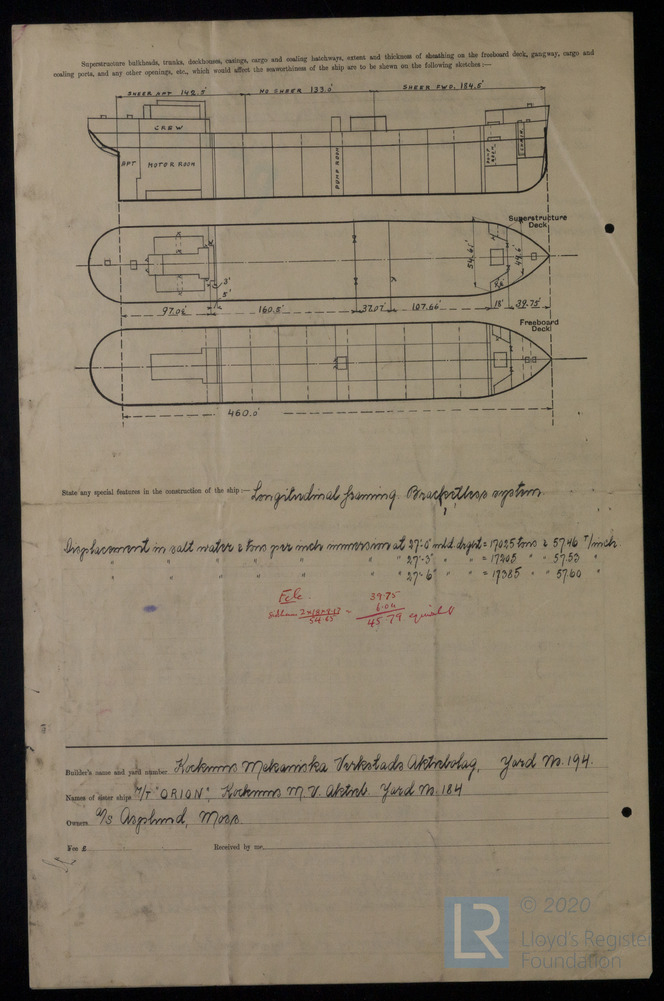 Superstructure bulkheads, trunks, deckhouses, casings, cargo and coaling hatchways, extent and thickness of sheathing on the freeboard deck, gangway, cargo and
coaling ports, and any other openings, etc., which would affect the seaworthiness of the ship are to be shewn on the following sketches:—
SHEER AFT 142.5' NO SHEER 133.0' SHEER FWD. 184.5'
CREW
APT MOTOR ROOM PUMP ROOM
Superstructure
Deck
54.61' 49.6'
3'
5'
97.08' 160.5' 37.07' 107.66' 18' 39.75'
Freeboard
Deck
460.0'
State any special features in the construction of the ship:— Longitudinal framing. Bracketless system
Displacement in salt water & tons per inch immersion at 27'-0" mld. = 17025 tons & 57.46 T/inch.
" " " " " " " " 27'-3" " " = 17205 " " 57.53 "
" " " " " " " " 27'-6" " " = 17385 " " 57.60 "
Fcle. 39.75
6.04
54.65 45.79
Builder's name and yard number Kockums Mekaniska Verkstads Aktiebolag, Yard No. 194.
Names of sister ships M/T "ORION", Kockums M.V. Aktieb. Yard No. 184
Owners A/S Moss.
Fee £ Received by me,
LR © 2020
Lloyd's Register
Foundation